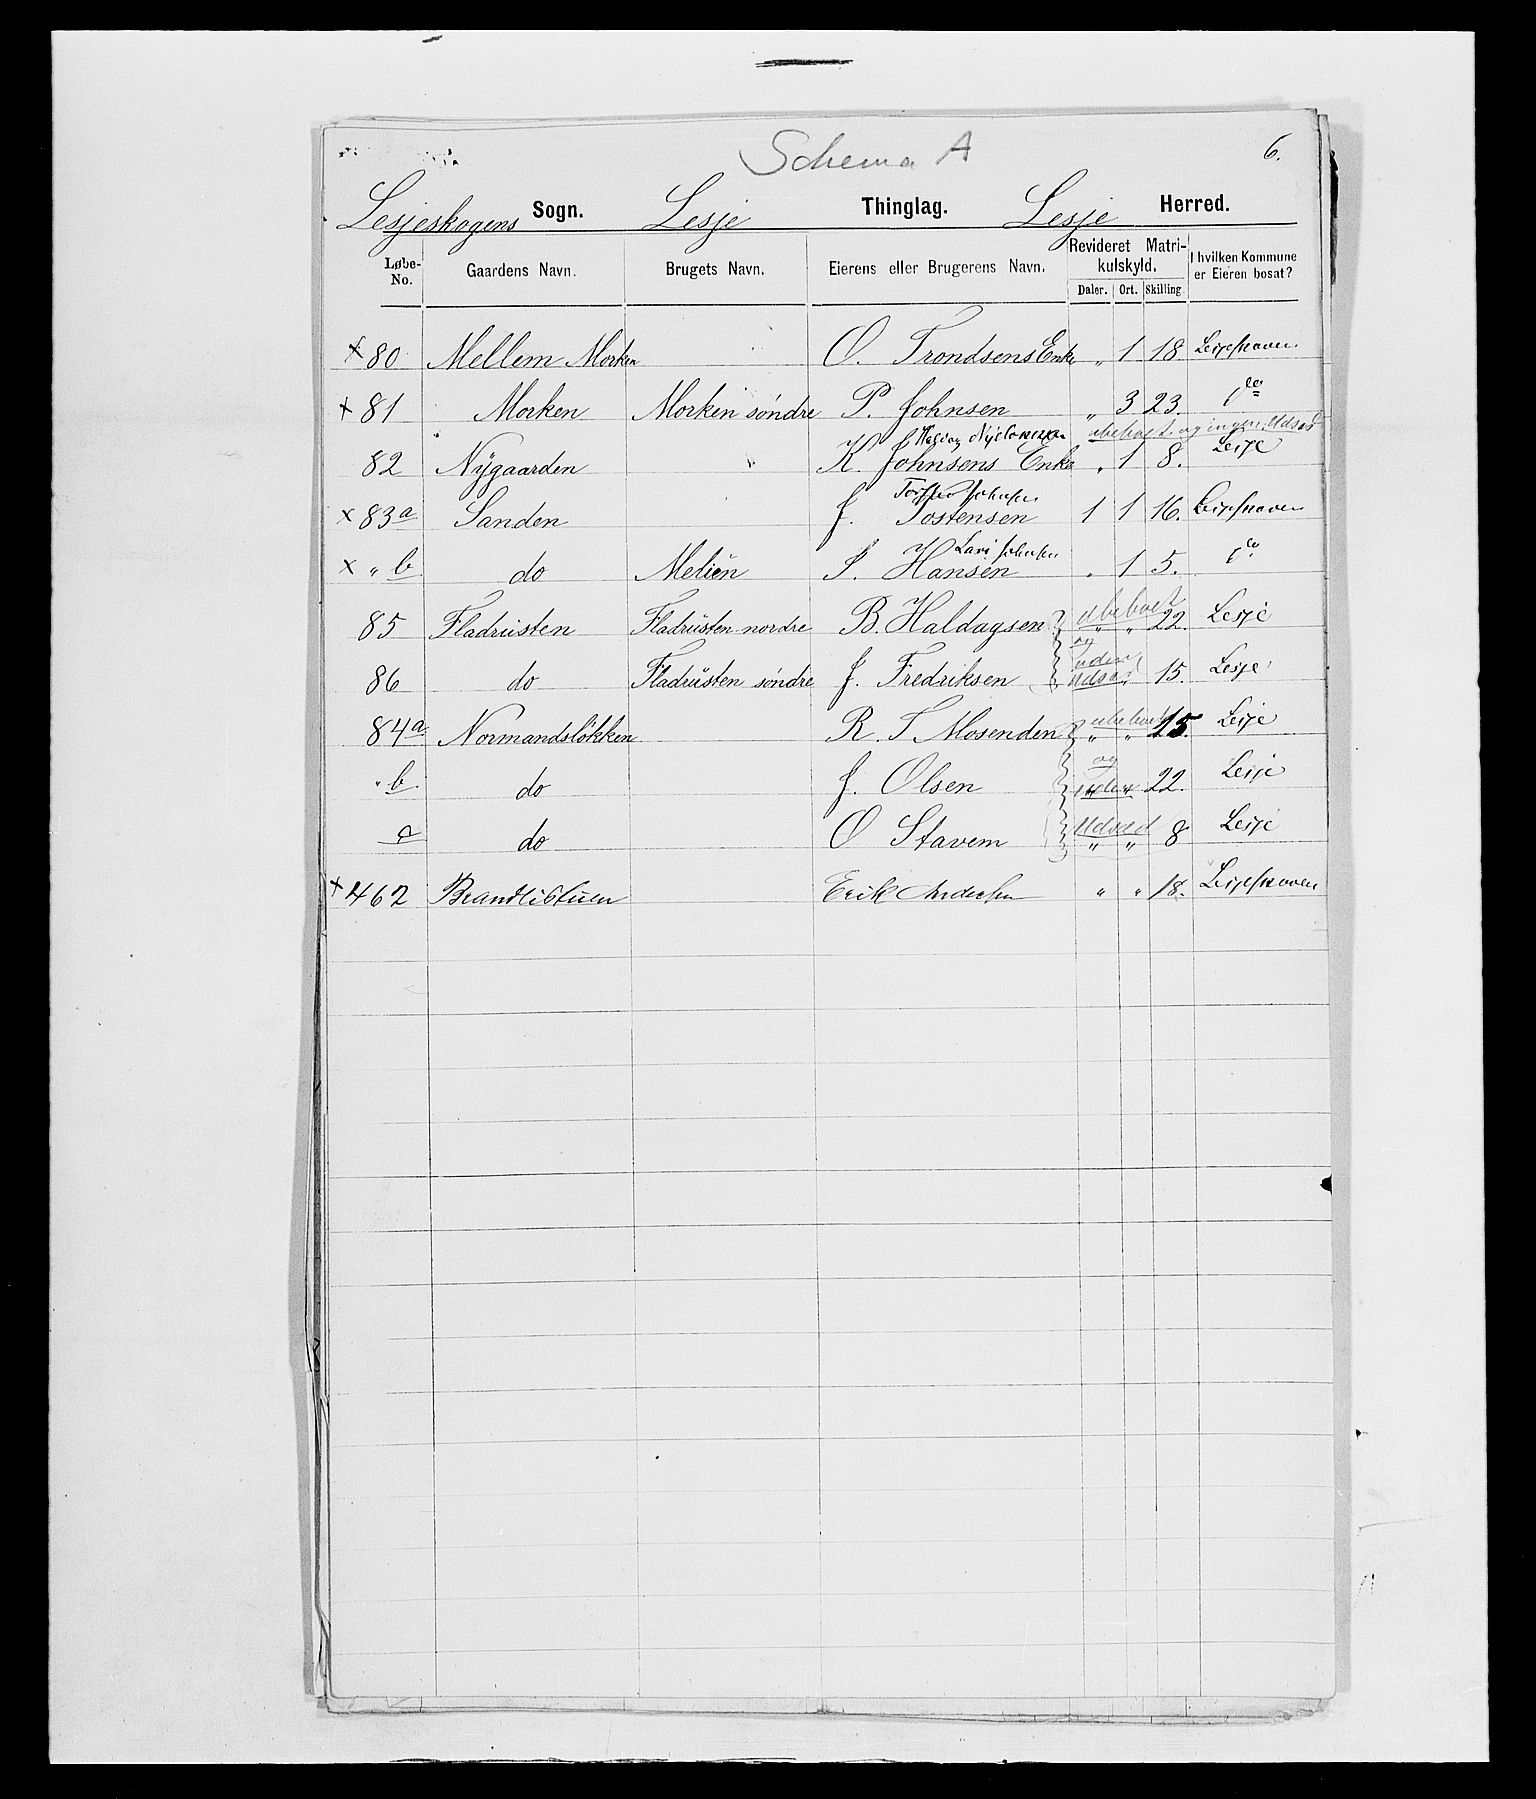 Schema A
6.
Lesjeskogens Sogn. Lesje Thinglag. Lesje Herred.
Løbe-No. Gaardens Navn. Brugets Navn. Eierens eller Brugerens Navn. Revideret Matrikulskyld. I hvilken Kommune er Eieren bosat?
Daler. Ort. Skilling
x 80 Mellem Morken O. Trondsens Enke " 1 18 Lesjeskoven
x 81 Morken Morken søndre P. Johnsen " 3 23. do
ubeboet og ingen Udsæd
82 Nÿgaarden K. Johnsens Enke " 1 8. Lesje
x 83a Sanden J. Tostensen 1 1 16. Lesjeskoven
x " b do Melien S. Hansen Lars Johnsen " 1 5. do
85 Fladrusten Fladrusten nordre B. Haldagsen ubeboet " " 22. Lesje
og
86 do Fladrusten søndre J. Fredriksen uden Udsæd 15. Lesje
84a Normandsløkken R. T Mosenden ubeboet " " 15. Lesje
og
" b do J. Olsen uden " " 22. Lesje
c do O Stavem Udsæd " " 8 Lesje
x 462 Brandlistuen Erik Andersen " " 18. Lesjeskoven